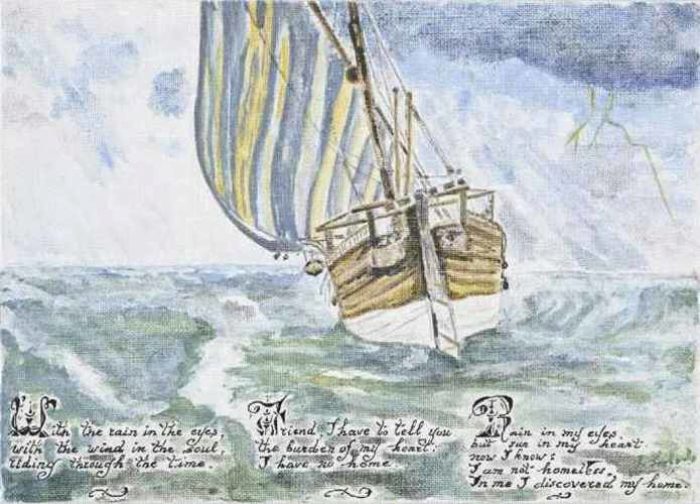 With the rain in the eyes,
with the wind in the Soul,
riding through the time.
Friend, I have to tell you
the burden of my heart:
I have no home.
Rain in my eyes
but sun in my heart
now I know:
I am not homeless.
In me I discovered my home.